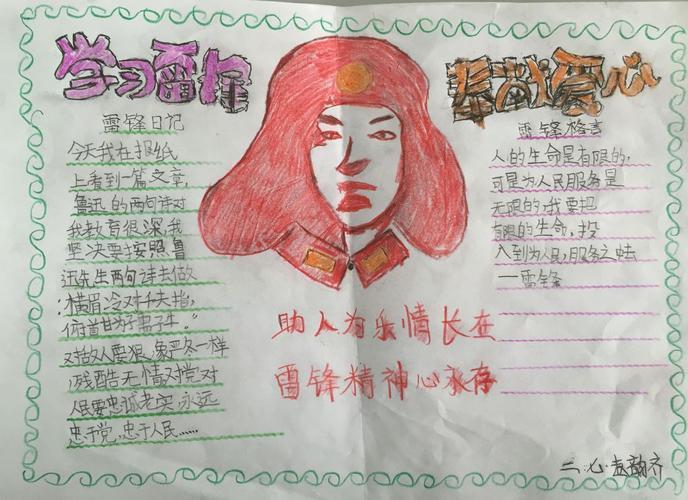 学习雷锋
奉献爱心
雷锋日记
今天我在报纸
上看到一篇文章,
鲁迅的两句诗对
我教育很深,我
坚决要按照鲁
迅先生两句诗去做
“横眉冷对千夫指,
俯首甘为孺子牛。”
对敌人要狠,象严冬一样
残酷无情,对党对
人民要忠诚老实,永远
忠于党,忠于人民……
雷锋格言
人的生命是有限的,
可是为人民服务是
无限的,我要把
有限的生命,投
入到为人民服务之中去
—雷锋
助人为乐情长在
雷锋精神心永存